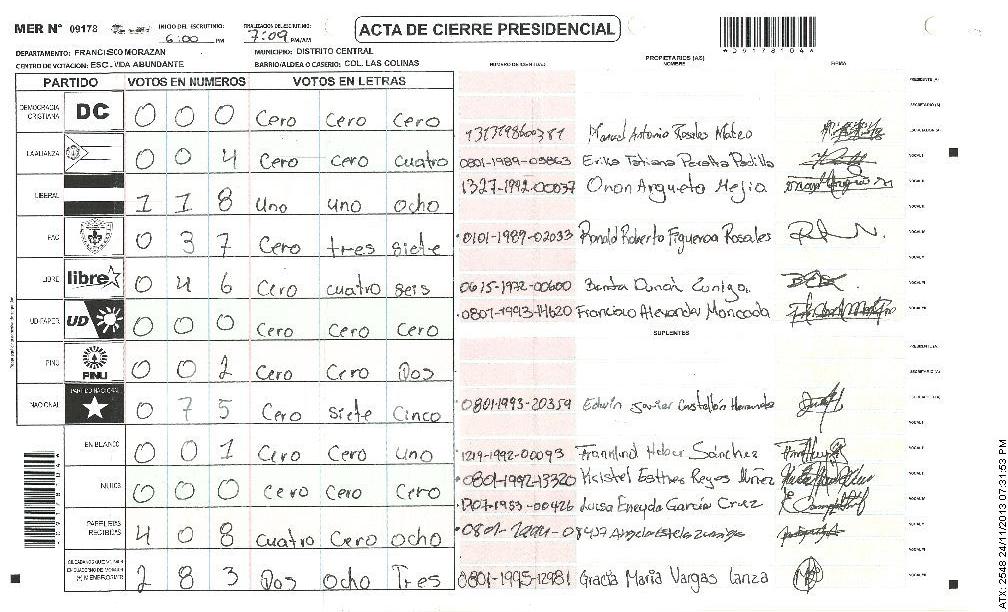 MER Nº 09178 INICIO DEL ESCRUTINIO: 6:00 PM FINALIZACION DEL ESCRUTINIO: 7:09 PM/AM ACTA DE CIERRE PRESIDENCIAL
*09178104*
DEPARTAMENTO: FRANCISCO MORAZAN MUNICIPIO: DISTRITO CENTRAL
CENTRO DE VOTACION: ESC. VIDA ABUNDANTE BARRIO/ALDEA O CASERIO: COL. LAS COLINAS
PROPIETARIOS (AS)
NUMERO DE IDENTIDAD NOMBRE FIRMA
PARTIDO VOTOS EN NUMEROS VOTOS EN LETRAS
DEMOCRACIA CRISTIANA DC 0 0 0 Cero Cero Cero
Manuel Antonio Rosales Mateo
LA ALIANZA 0 0 4 Cero cero cuatro
0801-1989-05863 Erika Tatiana Peralta Padilla
LIBERAL 1 1 8 Uno uno ocho
1327-1992-00037 Onan Argueta Mejia
PAC 0 3 7 Cero tres siete
0101-1989-02033 Ronald Roberto Figueroa Rosales
LIBRE libre 0 4 6 Cero cuatro seis
0615-1972-00600
UD FAPER UD 0 0 0 Cero Cero Cero
0801-1993-14620 Francisco Alexander Moncada
SUPLENTES
PINU PINU 0 0 2 Cero Cero Dos
NACIONAL PARTIDO NACIONAL 0 7 5 Cero siete Cinco
0801-1993-20359 Edwin Javier Castellón Hernandez
EN BLANCO 0 0 1 Cero Cero uno
1219-1992-00093 Sánchez
NULOS 0 0 0 Cero Cero Cero
0801-1992-13320 Kristel Esther Reyes Nuñez
1707-1953-00426 Luisa Eneyda García Cruz
PAPELETAS RECIBIDAS 4 0 8 cuatro Cero ocho
Angela Estela Zuniga
2 8 3 Dos ocho Tres
0801-1995-12981 Gracia Maria Vargas Lanza
ATX-2548 24/11/2013 07:31:53 PM